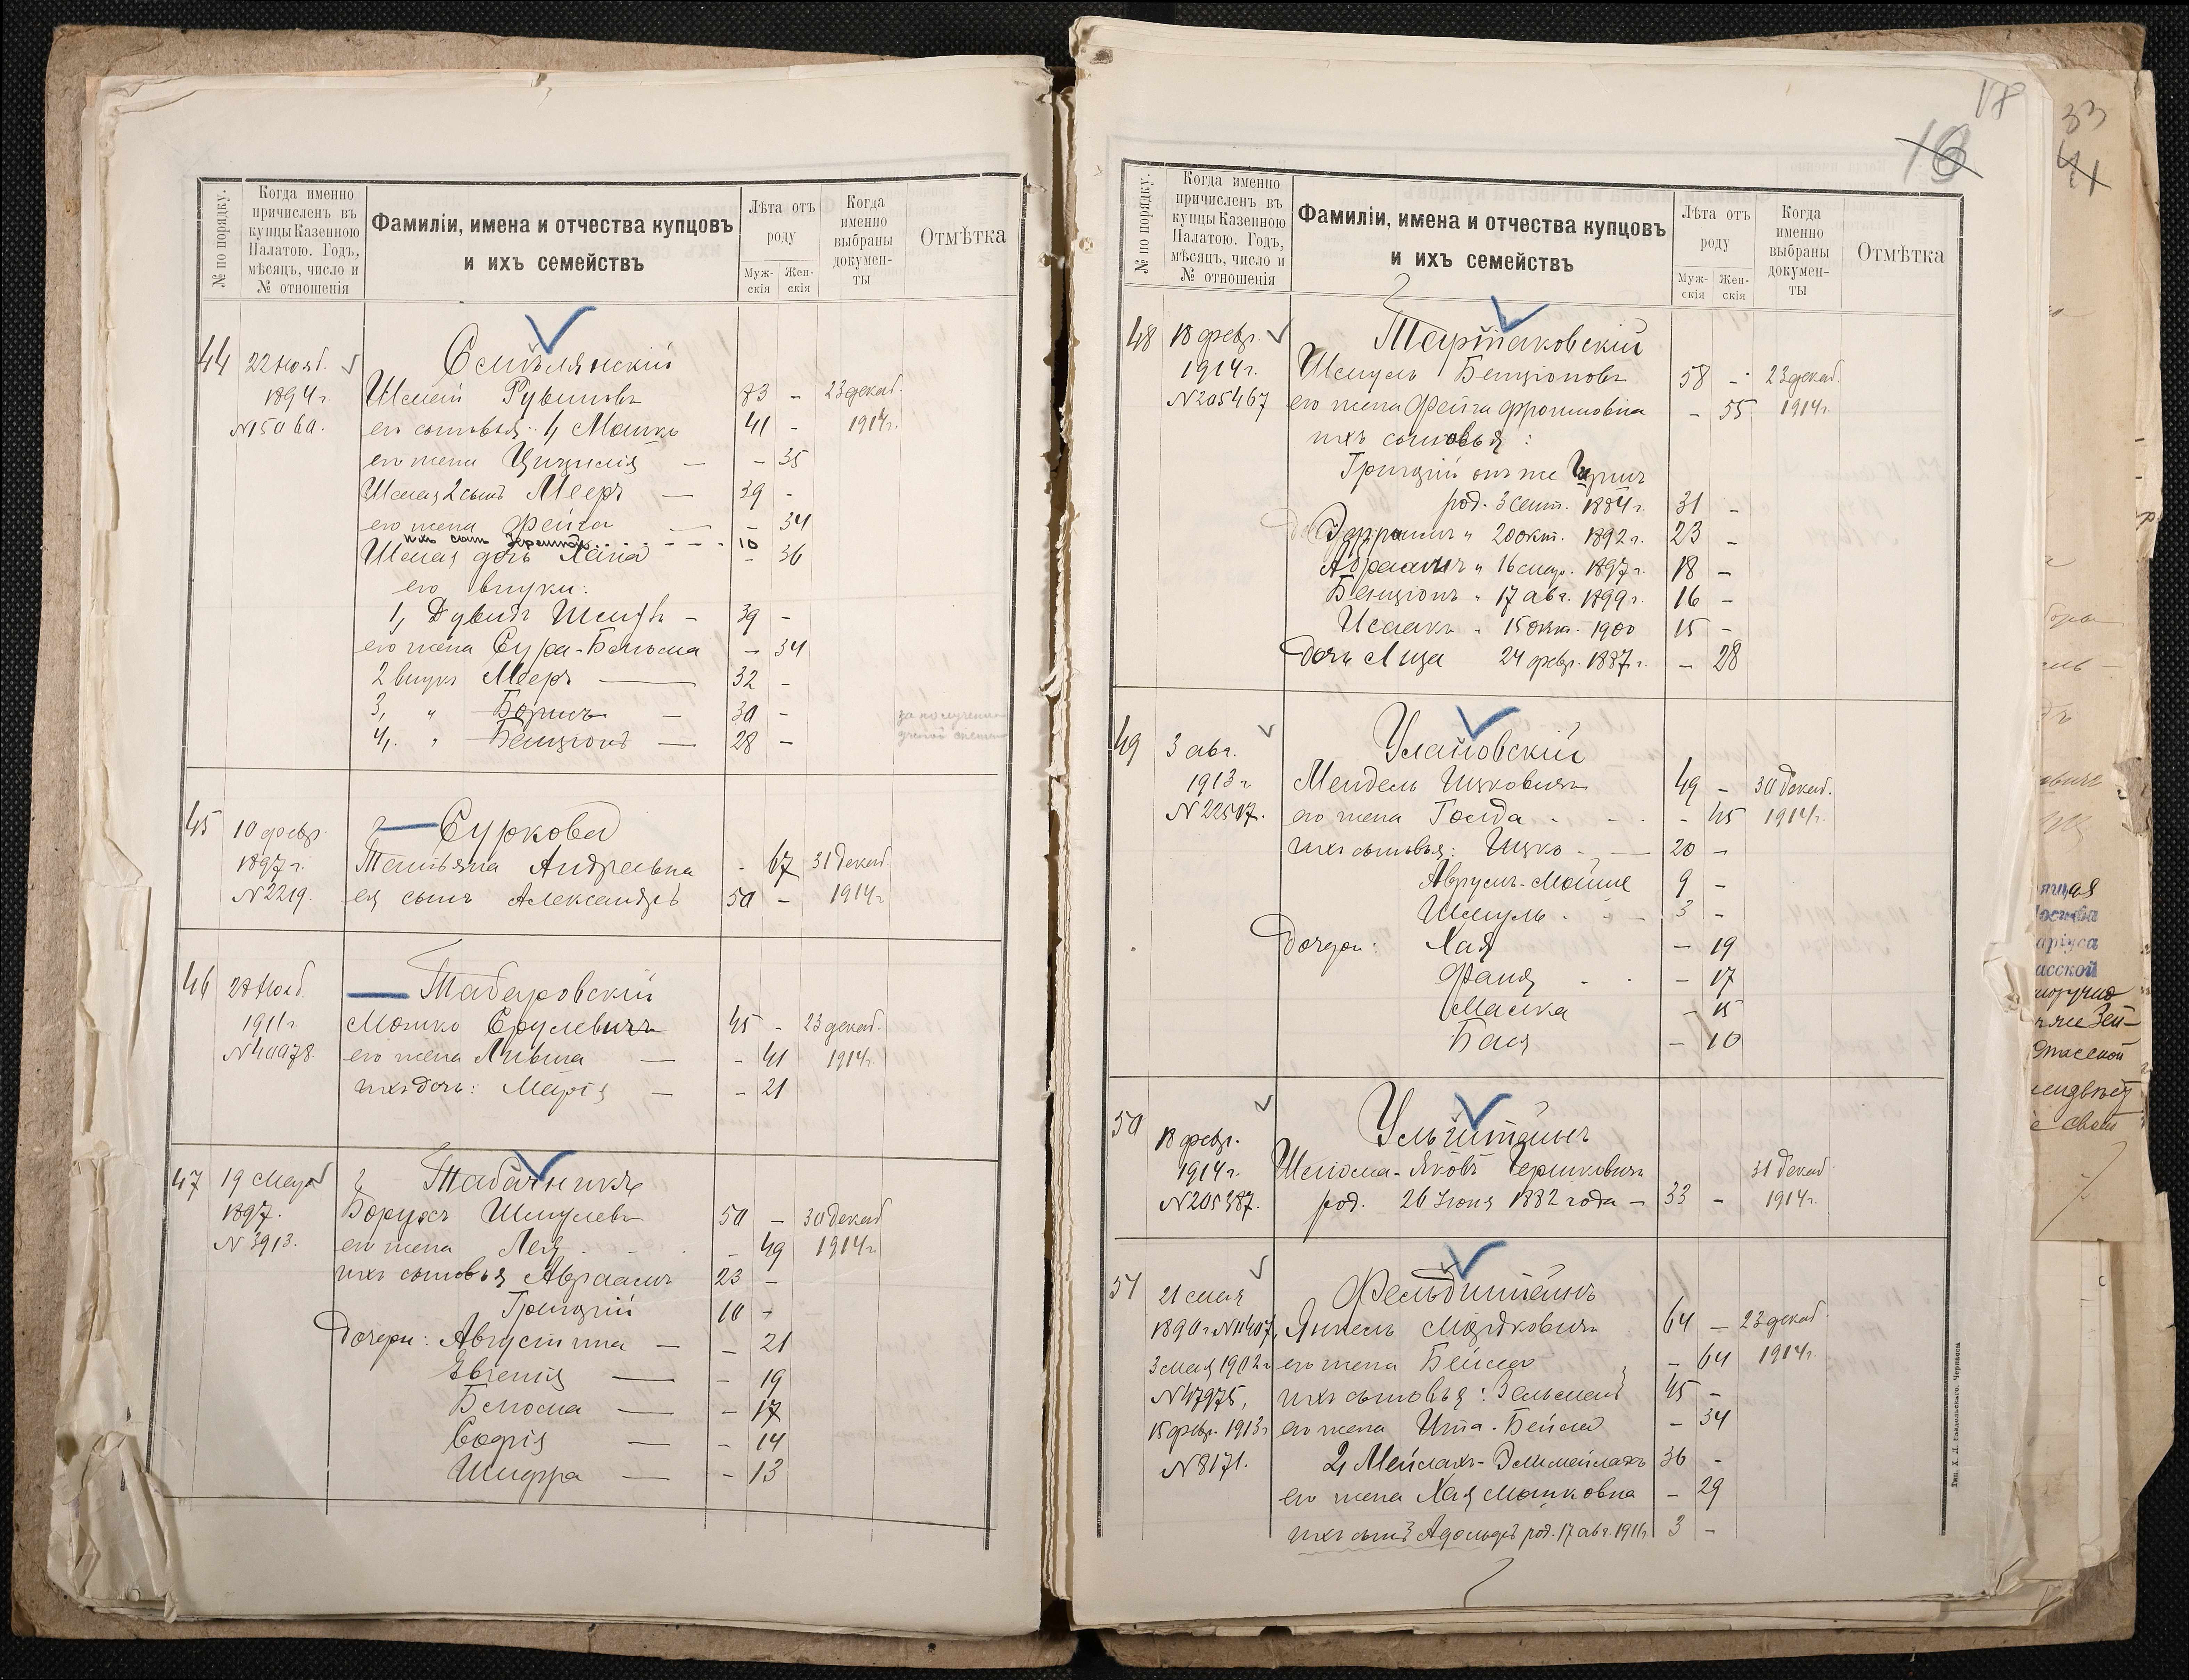 № по порядку.
Когда именно
причисленъ въ
купцы Казенною
Палатою. Годъ,
мѣсяцъ, число и
№ отношенія
Фамиліи, имена и отчества купцовъ
и ихъ семействъ
Лѣта отъ
роду
Муж-
скія
Жен-
скія
Когда
именно
выбраны
докумен-
ты
Отмѣтка
44 22 Нояб.
1894 г.
N 5060.
Шмай Рувиновъ 83 - 23 декаб.
его сыновья: 1, Мошко 41 - 1914 г.
его жена Цицилія - 35
Шмая 2 сынъ Мееръ 39 -
его жена Фейга - 34
ихъ сынъ 10
Шмая дочь Хана - 36
его внуки:
1, Дувидъ 39 -
его жена Сура-Бенюма - 34
2 внукъ Мееръ 32 -
3, " Борисъ 30 -
4, " Бенціонъ 28 -
45 10 февр. Суркова
1897 г. Татьяна Андреевна - 67 31 декаб.
N 2219. ея сынъ Александръ 50 - 1914 г.
46 28 Нояб. Табаровскій
1911 г. Мошко Срулевичъ 45 - 23 декаб.
N 40978. его жена Ливша - 41 1914 г.
ихъ дочь: Марія - 21
47 19 Мар. Табачникъ
1897. Борухъ Шмулевъ 50 - 30 декаб.
N 3913. его жена Лея - 49 1914 г.
ихъ сыновья Авраамъ 23 -
Григорій 10 -
Дочери: Августина - 21
Евгенія - 19
Бенюма - 17
Софія - 14
Шифра - 13
17
16
33
41
№ по порядку.
Когда именно
причисленъ въ
купцы Казенною
Палатою. Годъ,
мѣсяцъ, число и
№ отношенія
Фамиліи, имена и отчества купцовъ
и ихъ семействъ
Лѣта отъ
роду
Муж-
скія
Жен-
скія
Когда
именно
выбраны
докумен-
ты
Отмѣтка
48 18 февр. Тартаковскій
1914 г. Шмуль Бенціоновъ 58 - 23 декаб.
N 205467 его жена Фейга Фроимовна - 55 1914 г.
ихъ сыновья:
Григорій онъ же
род. 3 сент. 1884 г. 31 -
Эфраимъ " 20 окт. 1892 г. 23 -
Абрамъ " 16 мар. 1897 г. 18 -
Бенціонъ " 17 авг. 1899 г. 16 -
Исаакъ " 15 окт. 1900 15 -
Дочь Лиза 24 февр. 1887 г. - 28
49 3 авг. Улановскій
1913 г. Мендель Ицковичъ 49 - 30 декаб.
N 22517. его жена Голда - 45 1914 г.
ихъ сыновья: Ицко 20 -
Аврумъ-Мойше 9 -
Шмуль 3 -
Дочери: Хая - 19
Фаня - 17
Малка - 15
Бася - 10
50 18 февр. Ульштейнъ
1914 г. Шліома-Яковъ Гершковичъ 31 декаб.
N 205387. род. 26 Іюня 1882 года - 33 - 1914 г.
51 21 мая Фельдштейнъ
1890 г. N 11407, Янкель Мордковичъ 64 - 23 декаб.
3 мая 1902 г. его жена Бейла - 64 1914 г.
N 47975, ихъ сыновья: Зельманъ 45 -
15 февр. 1913 г. его жена Ита-Бейла - 34
N 8171. 2, Мейлахъ-Элимейлахъ 36 -
его жена Хая Мошковна - 29
ихъ сынъ Адольфъ род. 17 авг. 1911 г. 3 -